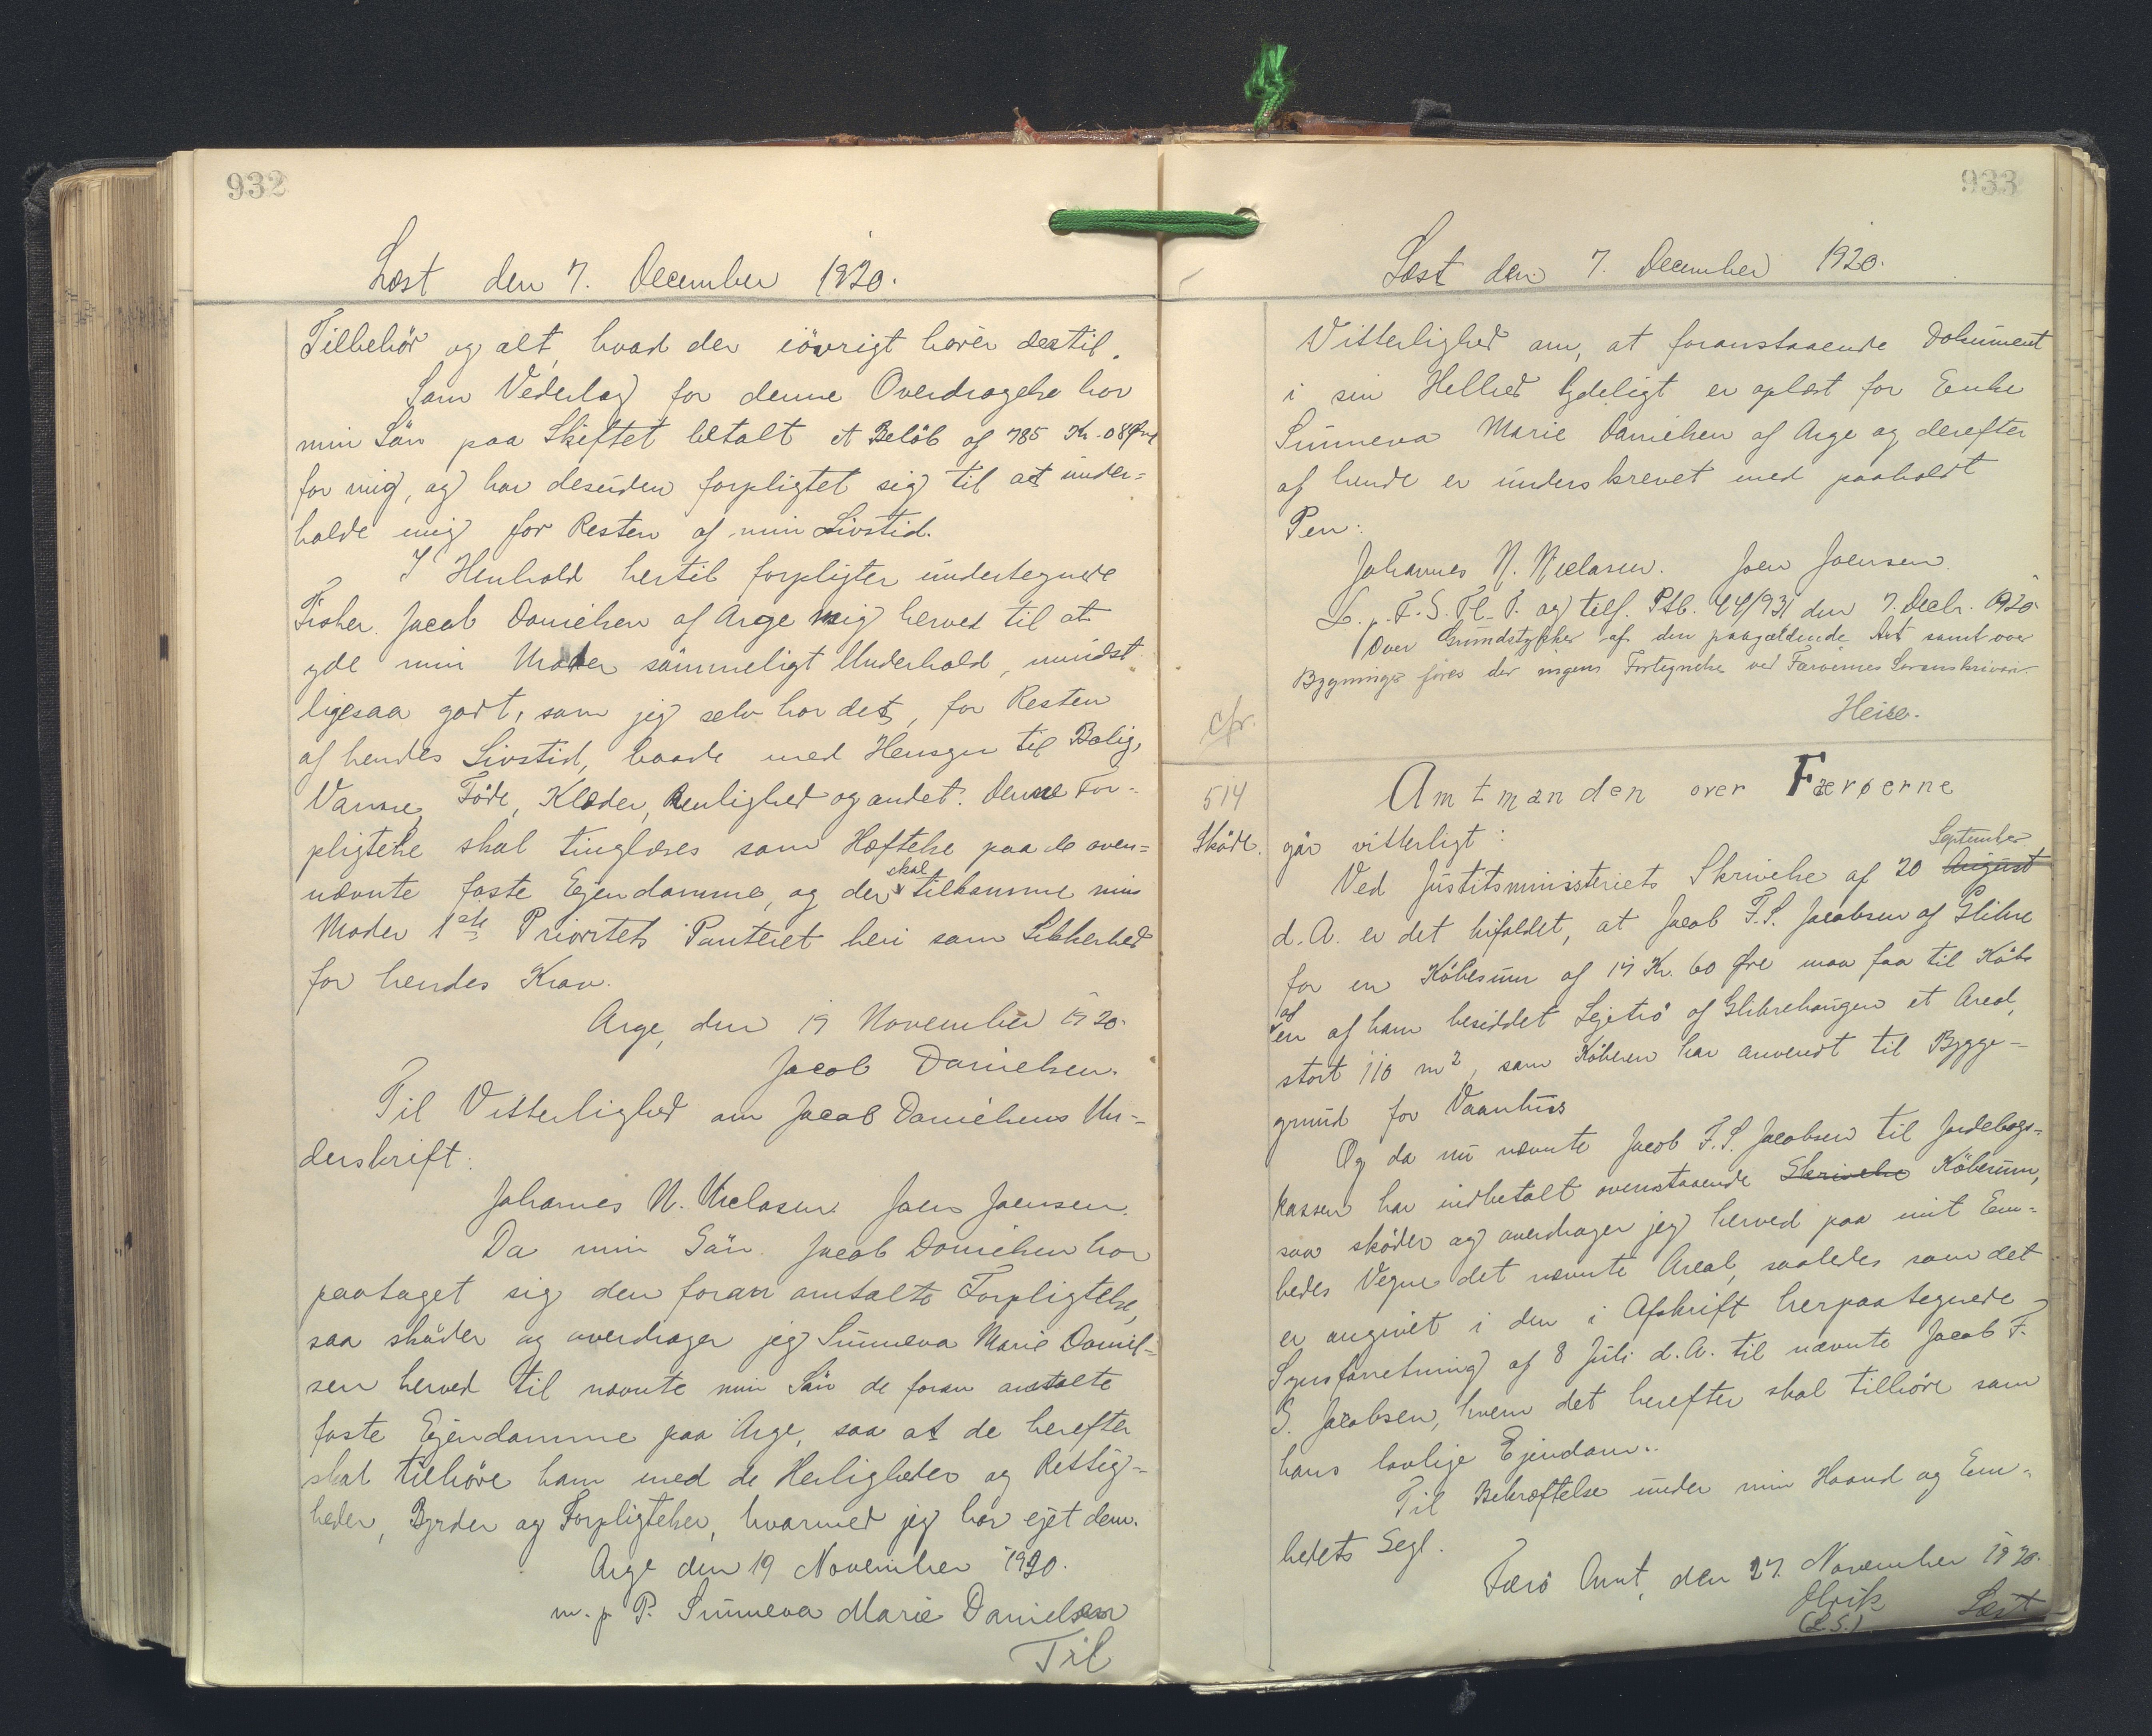 932
Læst den 7. December 1920.
Tilbehör og alt, hvad der iövrigt hörer dertil.
Som Vederlag for denne Overdragelse har
min Sön paa Skiftet betalt et Belöb af 785 Kr. 08 Øre
for mig, og har desuden forpligtet sig til at under=
holde mig for Resten af min Livstid.
I Henhold hertil forpligter undertegnede
Fisker Jacob Danielsen af Arge mig herved til at
yde min Moder sömmeligt Underhold, mindst
ligesaa godt, som jeg selv har det, for Resten
af hendes Livstid, baade med Hensyn til Bolig,
Varme, Föde, Klæder, Renlighed og andet. Denne For-
pligtelse skal tinglæses som Hæftelse paa de oven=
nævnte faste Ejendomme, og der skal tilkomme min
Moder 1ste Prioritets Panteret heri som Sikkerhed
for hendes Krav.
Arge, den 19 November 1920.
Jacob Danielsen.
Til Vitterlighed om Jacob Danielsens Un-
derskrift:
Johannes N. Nielasen. Joen Joensen.
Da min Sön Jacob Danielsen har
paataget sig den foran omtalte Forpligtelse,
saa sköder og overdrager jeg Sunneva Marie Daniel=
sen herved til nævnte min Sön de foran omtalte
faste Ejendomme paa Arge, saa at de herefter
skal tilhöre ham med de Herligheder og Rettig=
heder, Byrder og Forpligtelser, hvormed jeg har ejet dem.
Arge den 19 November 1920.
m. p. P. Sunneva Marie Danielsen
Til
933
Læst den 7. December 1920.
Vitterlighed om, at foranstaaende Dokument
i sin Helhed tydeligt er oplæst for Enke
Sunneva Marie Danielsen af Arge og derefter
af hende er underskrevet med paaholdt
Pen:
Johannes N. Nielasen. Joen Joensen.
L. p. F. S. Tl. P. og telf. Ptb. 44/931 den 7. Decbr. 1920
Over Grundstykker af den paagældende Art samt over
Bygninger föres der ingen Fortegnelse ved Færöernes Sorenskriveri.
Heise.
cfr.
Amtmanden over Færøerne
514
Sköde.
gör vitterligt:
Ved Justitsministeriets Skrivelse af 20 August September
d. A. er det bifaldet, at Jacob F. S. Jacobsen af Glibre
for en Köbesum af 17 Kr. 60 Øre maa faa til Köbs
af en af ham besiddet Lejetrö af Glibrehaugen et Areal,
stort 110 m2, som Köberen har anvendt til Bygge=
grund for Vaanhus
Og da nu nævnte Jacob F. S. Jacobsen til Jordebogs=
kassen har indbetalt ovenstaaende Skrivelse Köbesum,
saa sköder og overdrager jeg herved paa mit Em=
bedes Vegne det nævnte Areal, saaledes som det
er angivet i den i Afskrift herpaategnede
Synsforretning af 8 Juli d. A. til nævnte Jacob F.
S. Jacobsen, hvem det herefter skal tilhöre som
hans lovlige Ejendom.
Til Bekræftelse under min Haand og Em=
bedets Segl.
Færö Amt, den 27. November 1920.
Olrik
(L. S.)
Læst